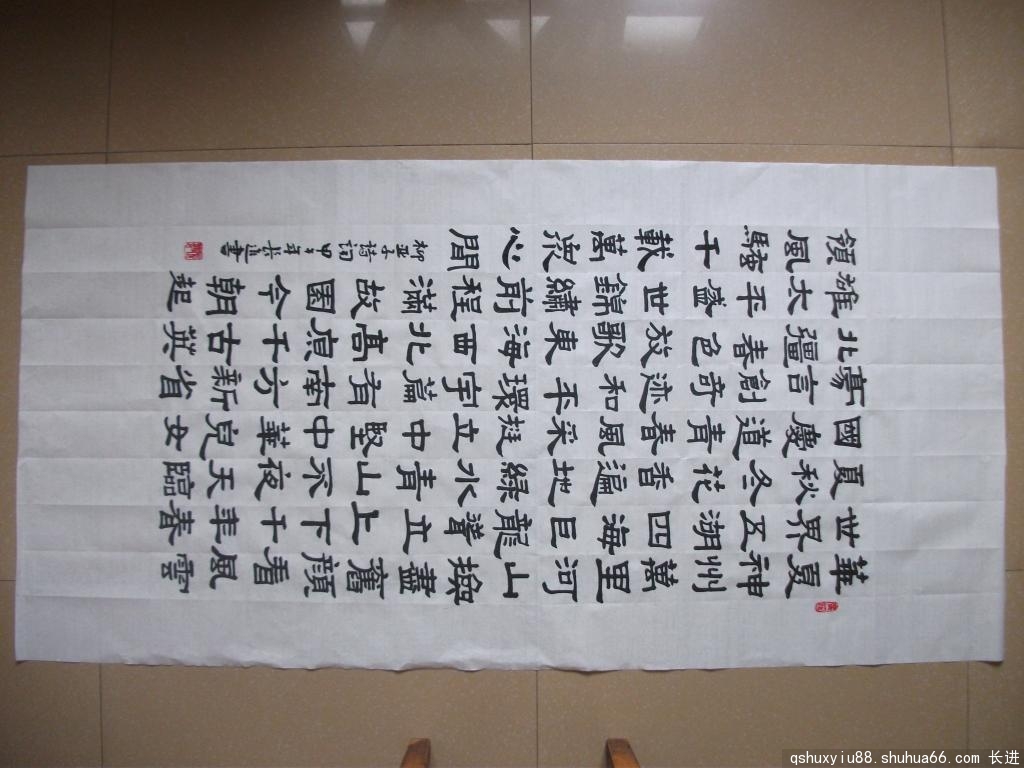 華夏神州萬里河山換盡舊顏看風雲
世界五湖四海巨龍聳立上下千年春
夏秋冬花香遍地綠水青山不夜天臨
國慶道青春風采挺立中堅中華兒女
豪言創奇迹和平環宇篇有南方新省
北疆春色放歌東海西北高原千古英
雄太平盛世錦繡前程滿故園今朝起
領風騷千載萬眾心間
柳亚子詩詞甲午年長進書
qshuxyiu88.shuhua66.com 长进